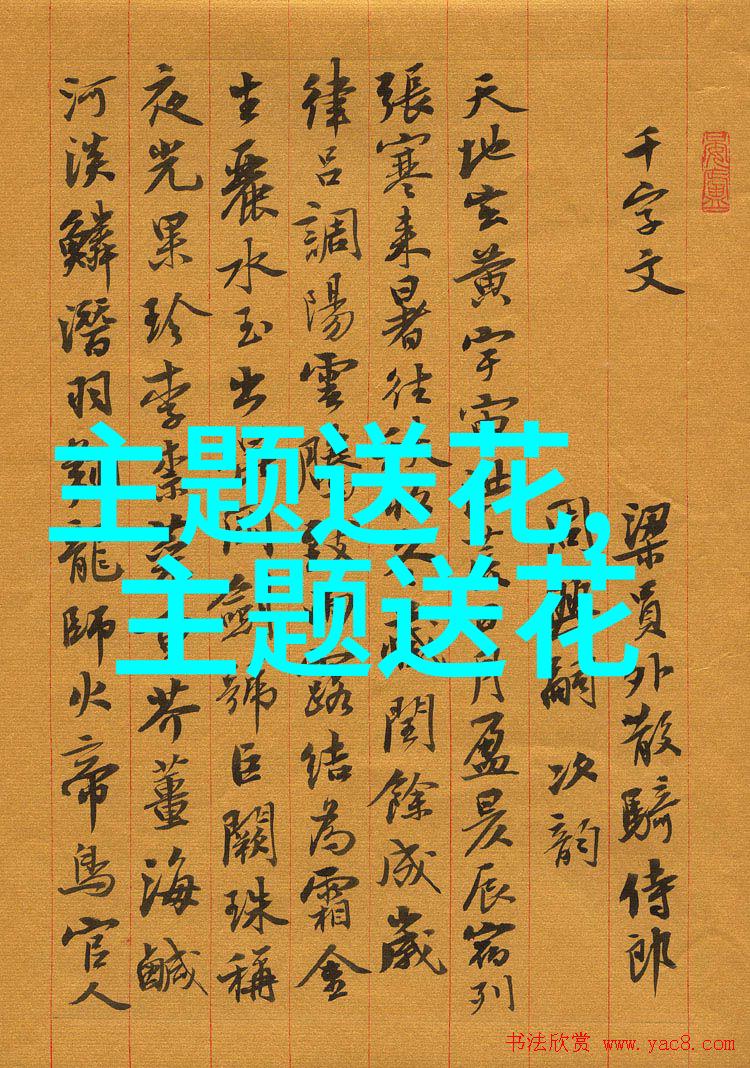 千字文
梁員外散騎侍郎
周興嗣次韵
天地玄黃宇宙洪荒日月盈昃辰宿列
張寒來暑往秋收冬藏閏餘成歲
律呂調陽雲騰致雨露結為霜金
生麗水玉出崑岡劍號巨闕珠稱
夜光果珍李柰菜重芥薑海鹹
河淡鱗潛羽翔龍師火帝鳥官人
主题送花,
主题送花
书法欣赏 www.yac8.com